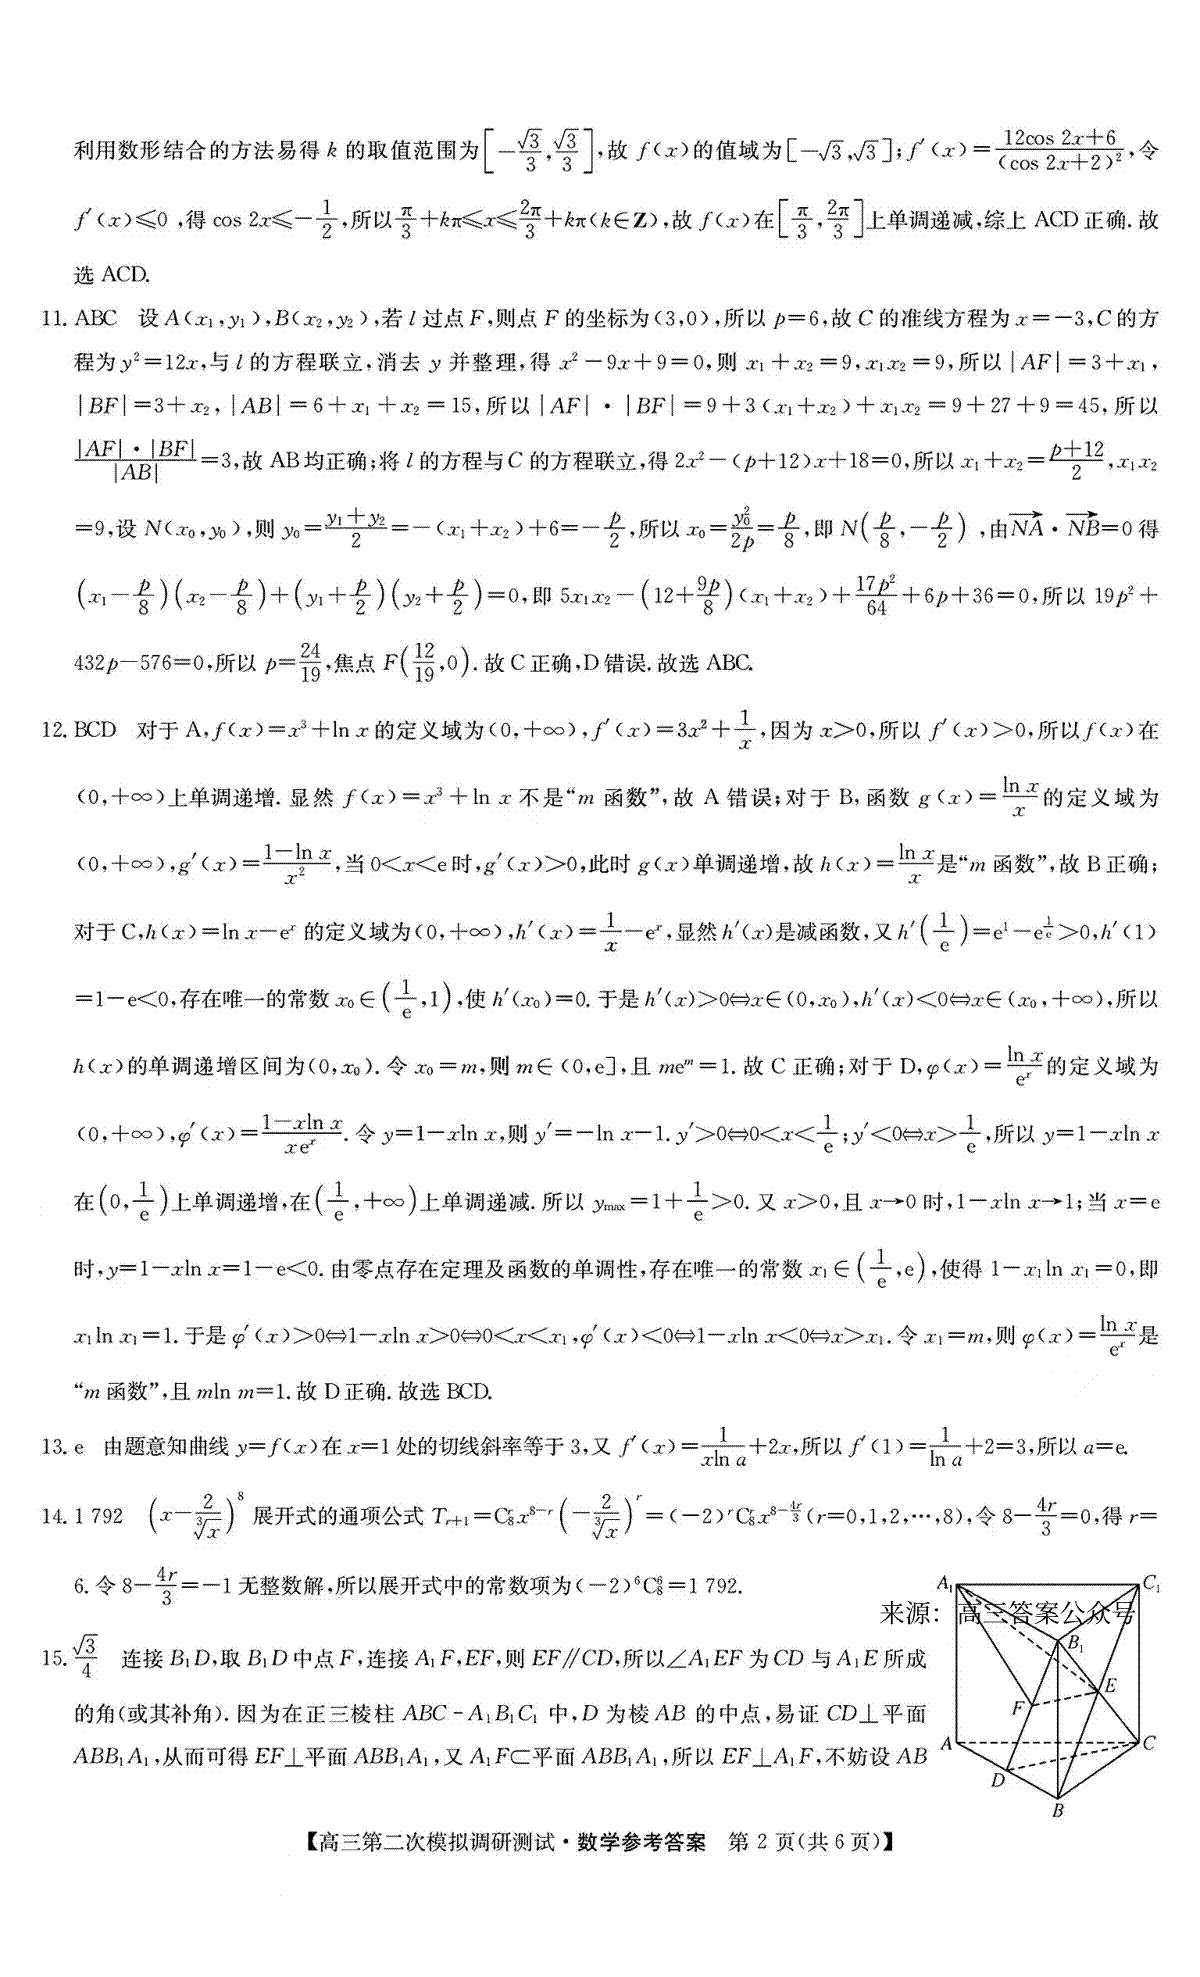 利用数形结合的方法易得 k 的取值范围为[-√3/3,√3/3],故 f(x)的值域为[-√3,√3];f′(x)=(12cos 2x+6)/(cos 2x+2)²,令
f′(x)≤0 ,得 cos 2x≤-1/2,所以π/3+kπ≤x≤2π/3+kπ(k∈Z),故 f(x)在[π/3,2π/3]上单调递减,综上 ACD 正确. 故
选 ACD.
11. ABC 设 A(x₁,y₁),B(x₂,y₂),若 l 过点 F,则点 F 的坐标为(3,0),所以 p=6,故 C 的准线方程为 x=-3,C 的方
程为 y²=12x,与 l 的方程联立,消去 y 并整理,得 x²-9x+9=0,则 x₁+x₂=9,x₁x₂=9,所以|AF|=3+x₁,
|BF|=3+x₂,|AB|=6+x₁+x₂=15,所以|AF|·|BF|=9+3(x₁+x₂)+x₁x₂=9+27+9=45,所以
|AF|·|BF|/|AB|=3,故 AB 均正确;将 l 的方程与 C 的方程联立,得 2x²-(p+12)x+18=0,所以 x₁+x₂=(p+12)/2,x₁x₂
=9,设 N(x₀,y₀),则 y₀=(y₁+y₂)/2=-(x₁+x₂)+6=-p/2,所以 x₀=y₀²/2p=p/8,即 N(p/8,-p/2),由NA→·NB→=0 得
(x₁-p/8)(x₂-p/8)+(y₁+p/2)(y₂+p/2)=0,即 5x₁x₂-(12+9p/8)(x₁+x₂)+17p²/64+6p+36=0,所以 19p²+
432p-576=0,所以 p=24/19,焦点 F(12/19,0). 故 C 正确,D 错误. 故选 ABC.
12. BCD 对于 A,f(x)=x³+ln x 的定义域为(0,+∞),f′(x)=3x²+1/x,因为 x>0,所以 f′(x)>0,所以f(x)在
(0,+∞)上单调递增. 显然 f(x)=x³+ln x 不是“m 函数”,故 A 错误;对于 B,函数 g(x)=ln x/x的定义域为
(0,+∞),g′(x)=(1-ln x)/x²,当 0<x<e 时,g′(x)>0,此时 g(x)单调递增,故 h(x)=ln x/x是“m 函数”,故 B 正确;
对于 C,h(x)=ln x-eˣ 的定义域为(0,+∞),h′(x)=1/x-eˣ,显然 h′(x)是减函数,又 h′(1/e)=e¹-e^(1/e)>0,h′(1)
=1-e<0,存在唯一的常数 x₀∈(1/e,1),使 h′(x₀)=0. 于是 h′(x)>0⇔x∈(0,x₀),h′(x)<0⇔x∈(x₀,+∞),所以
h(x)的单调递增区间为(0,x₀). 令 x₀=m,则 m∈(0,e],且 meᵐ=1. 故 C 正确;对于 D,φ(x)=ln x/eˣ的定义域为
(0,+∞),φ′(x)=(1-xln x)/xeˣ. 令 y=1-xln x,则 y′=-ln x-1. y′>0⇔0<x<1/e;y′<0⇔x>1/e,所以 y=1-xln x
在(0,1/e)上单调递增,在(1/e,+∞)上单调递减. 所以 yₘₐₓ=1+1/e>0. 又 x>0,且 x→0 时,1-xln x→1;当 x=e
时,y=1-xln x=1-e<0. 由零点存在定理及函数的单调性,存在唯一的常数 x₁∈(1/e,e),使得 1-x₁ln x₁=0,即
x₁ln x₁=1. 于是 φ′(x)>0⇔1-xln x>0⇔0<x<x₁,φ′(x)<0⇔1-xln x<0⇔x>x₁. 令 x₁=m,则 φ(x)=ln x/eˣ是
“m 函数”,且 mln m=1. 故 D 正确. 故选 BCD.
13. e 由题意知曲线 y=f(x)在 x=1 处的切线斜率等于 3,又 f′(x)=1/(xln a)+2x,所以 f′(1)=1/ln a+2=3,所以 a=e.
14. 1 792 (x-2/∛x)⁸ 展开式的通项公式 Tᵣ₊₁=C₈ʳx⁸⁻ʳ(-2/∛x)ʳ=(-2)ʳC₈ʳx^(8-4r/3)(r=0,1,2,…,8),令 8-4r/3=0,得 r=
6. 令 8-4r/3=-1 无整数解,所以展开式中的常数项为(-2)⁶C₈⁶=1 792.
来源: 高三答案公众号
15. √3/4 连接 B₁D,取 B₁D 中点 F,连接 A₁F,EF,则 EF∥CD,所以∠A₁EF 为 CD 与 A₁E 所成
的角(或其补角). 因为在正三棱柱 ABC-A₁B₁C₁ 中,D 为棱 AB 的中点,易证 CD⊥平面
ABB₁A₁,从而可得 EF⊥平面 ABB₁A₁,又 A₁F⊂平面 ABB₁A₁,所以 EF⊥A₁F,不妨设 AB
A₁
C₁
B₁
E
F
A
C
D
B
【高三第二次模拟调研测试·数学参考答案 第 2 页(共 6 页)】